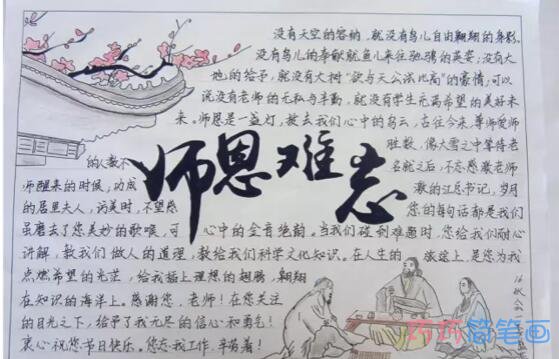 没有天空的容纳，就没有鸟儿自由翱翔的身影。
没有鸟儿的奉献就鱼儿来往驰骋的英姿；没有大
地的给予，就没有大树“欲与天公试比高”的豪情；可以
说没有老师的无私与辛勤，就没有学生充满希望的美好未
来。师恩是一盏灯，拨去我们心中的乌云，古往今来，尊师爱师
的人数不胜数，像大雪之中等待老
师醒来的时候；功成名就之后，不忘感激老师
的居里夫人，访美时，不望感激的江总书记，岁月
虽磨去了您美妙的歌喉，可您的每句话都是我们
心中的金音绝韵。当我们碰到难题时，您给我们耐心
讲解，教我们做人的道理，教给我们科学文化知识。在人生的旅途上，是您为我
点燃希望的光芒，给我插上理想的翅膀，翱翔
在知识的海洋上。感谢您，老师！在您关注
的目光之下，给予了我无尽的信心和勇气！
衷心祝您节日快乐。您忘我工作，辛劳着！
师恩难忘
巧巧简笔画